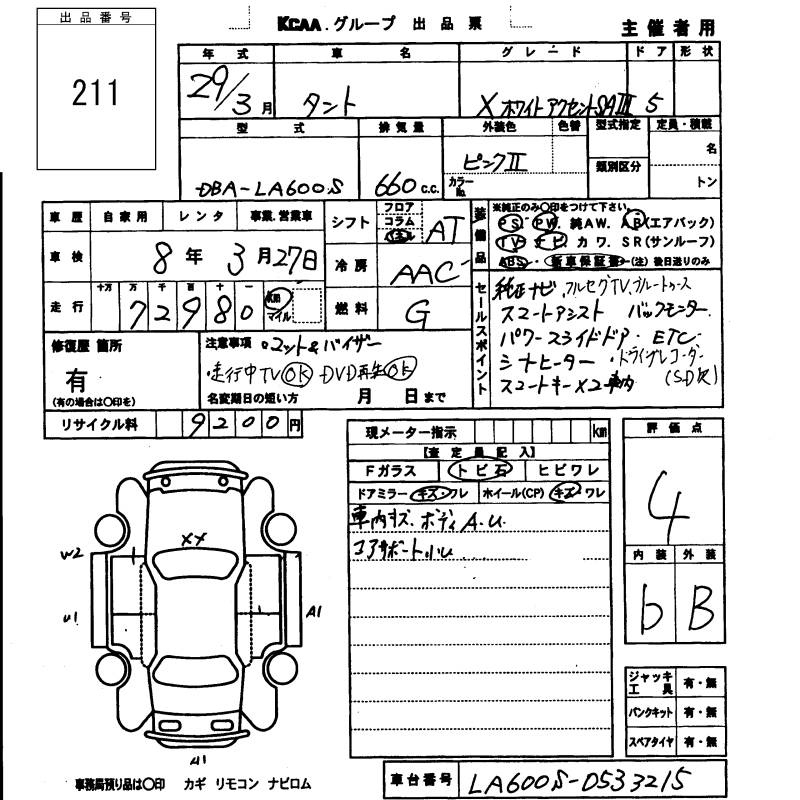 出品番号
211
KCAA.グループ 出品票
主催者用
年式 車名 グレード ドア 形状
29/3月 タント X ホワイトアクセントSAIII 5
型式 排気量 外装色 色替 型式指定 定員・積載
名
類別区分
DBA-LA600S 660c.c. ピンクII カラーNo. トン
車歴 自家用 レンタ 事業.営業車
シフト フロア コラム AT
装備品
※純正のみ〇印をつけて下さい。
PS PW 純AW. AB(エアバック)
TV ナビ カワ. SR(サンルーフ)
ABS・新車保証書(注)後日送りのみ
車検 8年3月27日
冷房 AAC
走行 十万 万 千 百 十 一
72980 km マイル
燃料 G
セールスポイント
純正ナビ,フルセグTV,ブルートゥース
スマートアシスト バックモニター.
パワースライドドア・ETC
シートヒーター・ドライブレコーダー
スマートキー×2車内 (SD欠)
修復歴 箇所
有
(有の場合は〇印を)
注意事項 ・マット&バイザー
・走行中TV OK DVD再生OK
名変期日の短い方 月 日まで
リサイクル料 9200円
現メーター指示 km
【査定員記入】
Fガラス トビ石 ヒビワレ
ドアミラー キズ・ワレ ホイール(CP) キズ・ワレ
車内キズ.ボディA.U.
コアサポート小U
評価点
4
内装 外装
b B
XX
W2
U1
A1
A1
ジャッキ工具 有・無
パンクキット 有・無
スペアタイヤ 有・無
事務局預り品は〇印 カギ リモコン ナビロム
車台番号 LA600S-0533215